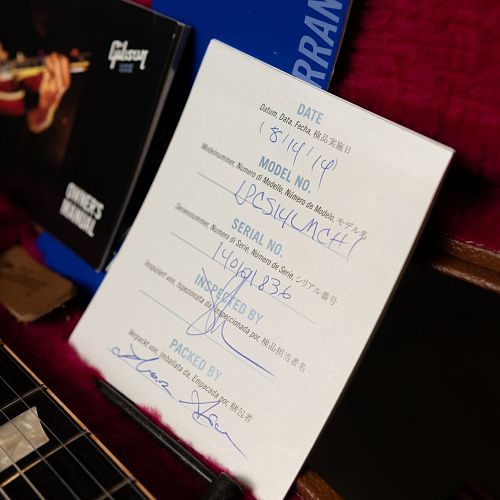 Gibson
OWNER'S
MANUAL
RRAN
DATE
Datum, Data, Fecha, 検品実施日
18/14/14
MODEL NO.
Modelnummer, Numero di Modello, Número de Modelo, モデル名
LPCS14LMCH1
SERIAL NO.
Seriennummer, Numero di Serie, Número de Serie, シリアル番号
140121836
INSPECTED BY
Inspiziert von, Ispezionata da, Inspeccionada por, 検品担当者名
PACKED BY
Verpackt von, Imballata da, Empacada por, 梱包者